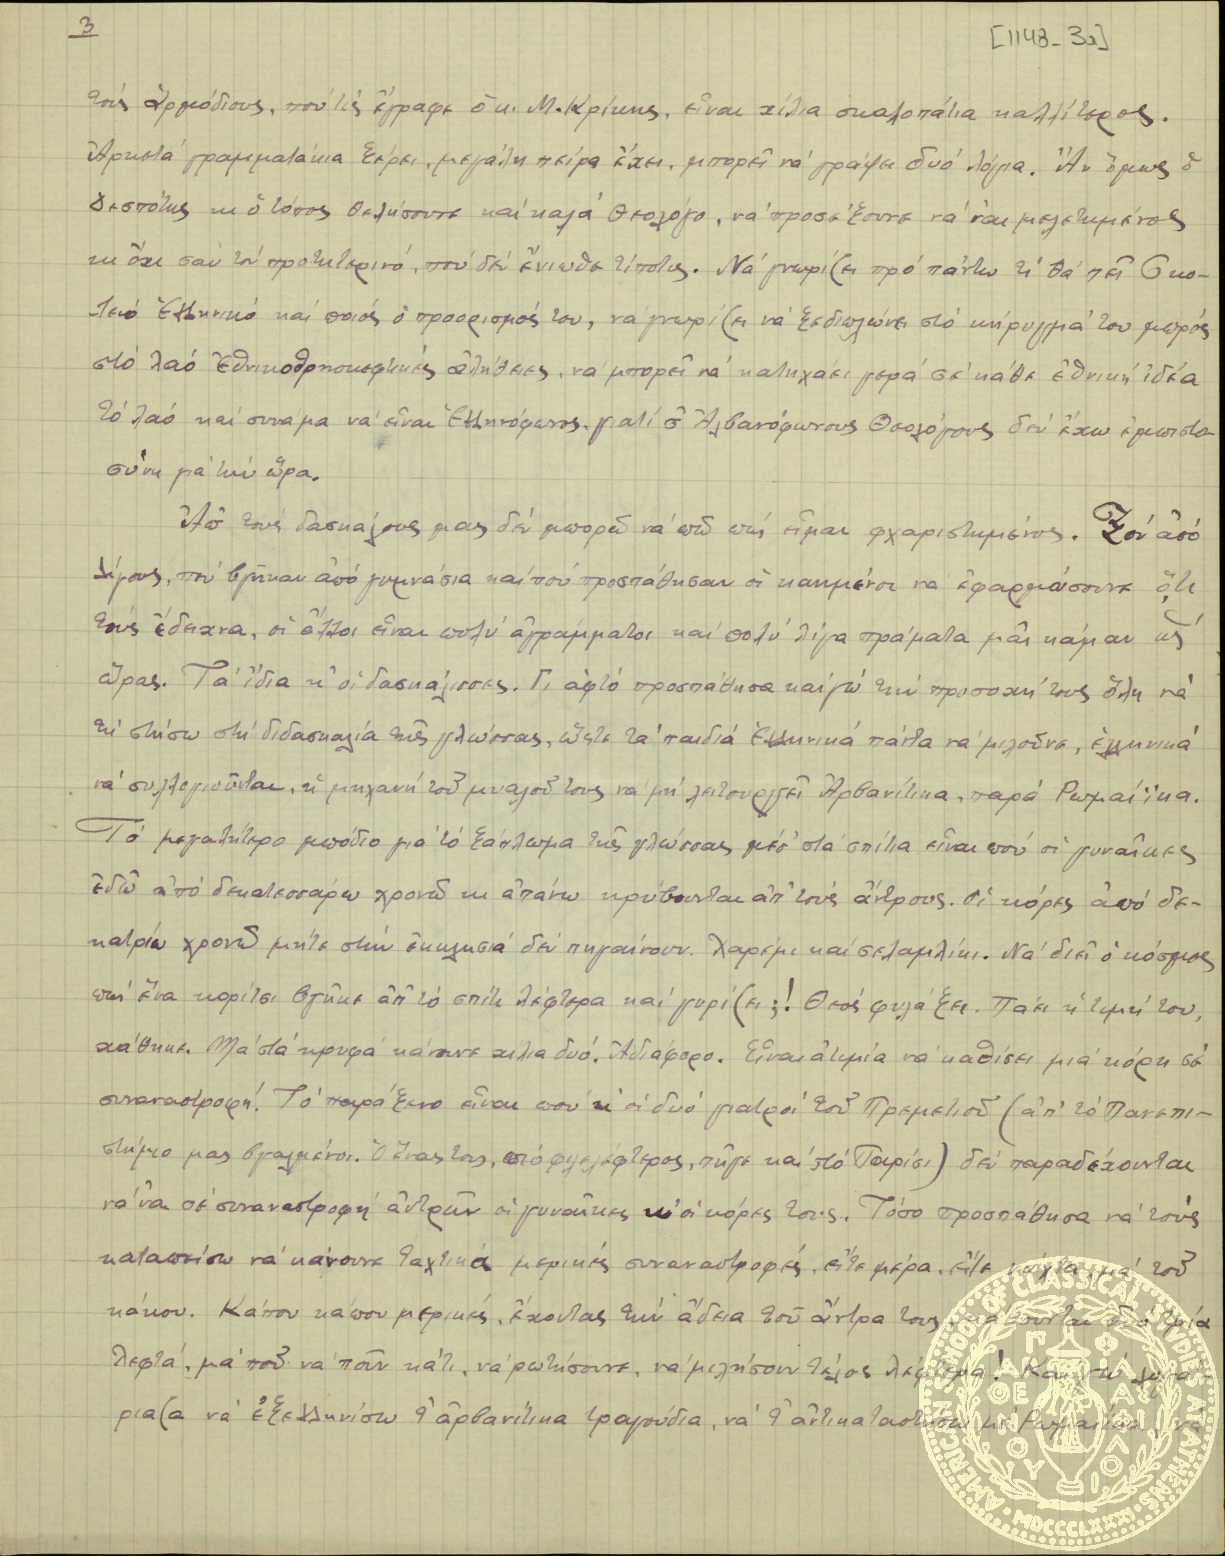 3
[1143-3α]
τοὺς ἁρμόδιους, ποὺ τὶς ἔγραφε ὁ κ. Μ. Κρίκης, εἶναι χίλια σκαλοπάτια καλλίτερος.
Ἀρκετὰ γραμματάκια ξέρει, μεγάλη πείρα ἔχει, μπορεῖ νὰ γράψει δυὸ λόγια. Ἂν ὅμως ὁ
Δεσπότης κι ὁ τόπος θελήσουνε καὶ καλὰ Θεολόγο, νὰ προσέξουνε νὰ ναι μελετημένος
κι ὄχι σαν τὸν προτητερινό, ποὺ δὲν ἔνιωθε τίποτις. Νὰ γνωρίζει πρὸ πάντω τί θὰ πεῖ Σκο-
λειὸ Ἑλληνικό καὶ ποιὸς ὁ προορισμός του, νὰ γνωρίζει νὰ ξεδιπλώνει στὸ κήρυγμά του μπρὸς
στὸ λαὸ Ἐθνικοθρησκεφτικές ἀλήθειες, νὰ μπορεῖ νὰ κατηχάει γερὰ σὲ κάθε ἐθνικὴ ἰδέα
τὸ λαὸ καὶ συναμα νὰ εἶναι Ἑλληνόφωνος, γιατὶ σ' Ἀλβανόφωνους Θεολόγους δὲν ἔχω ἐμπιστο-
σύνη γιὰ τὴν ὥρα.
Ἀπ' τοὺς δασκάλους μας δὲν μπορῶ νὰ πῶ πὼς εἶμαι φχαριστημένος. Ξὸν ἀπὸ
λίγους, ποὺ βγῆκαν ἀπὸ γυμνάσια καὶ ποὺ προσπάθησαν οἱ καημένοι νὰ ἐφαρμόσουνε ὅτι
τοὺς ἔδειχνα, οἱ ἄλλοι εἶναι πολὺ ἀγράμματοι καὶ πολὺ λίγα πράματα μᾶς κάμαν ὡς
ὥρας. Τὰ ἴδια κ' οἱ δασκάλισσες. Γι ἀφτὸ προσπάθησα καὶ γὼ τὴν προσοχή τους ὅλη νὰ
τὴ στήσω στὴ διδασκαλία τῆς γλώσσας, ὥστε τὰ παιδιὰ Ἑλληνικά πάντα νὰ μιλοῦνε, ἑλληνικά
νὰ συλλογιοῦνται, ἡ μηχανὴ τοῦ μυαλοῦ τους νὰ μὴ λειτουργεῖ Ἀρβανίτικα, παρὰ Ρωμαίϊκα.
Τὸ μεγαλήτερο μπόδιο γιὰ τὸ ξάπλωμα τῆς γλώσσας μέσ' στὰ σπίτια εἶναι ποὺ οἱ γυναῖκες
ἐδῶ ἀπὸ δεκατεσσάρω χρονῶ κι ἀπάνω κρύβουνται ἀπ' τοὺς ἄντρους. Οἱ κόρες ἀπὸ δε-
κατρίω χρονῶ μήτε στὴν ἐκκλησιὰ δὲν πηγαίνουν. Χαρέμι καὶ σελαμλίκι. Νὰ διεῖ ὁ κόσμος
πὼς ἕνα κορίτσι βγῆκε ἀπ' τὸ σπίτι λέφτερα καὶ γυρίζει;! Θεὸς φυλάξει. Πάει ἡ τιμή του,
χάθηκε. Μὰ στὰ κρυφὰ κάνουνε χίλια δυό. Ἀδιάφορο. Εἶναι ἀτιμία νὰ καθίσει μιὰ κόρη σὲ
συναναστροφή. Τὸ παράξενο εἶναι ποὺ κ' οἱ δυὸ γιατροὶ τοῦ Πρεμετιοῦ (ἀπ' τὸ Πανεπι-
στήμιο μας βγαλμένοι. Ὁ ἕνας τους, πιὸ φιλελέφτερος, πῆγε καὶ στὸ Παρίσι) δὲν παραδέχουνται
νὰ ναι σὲ συναναστροφὴ ἀντρῶν οἱ γυναῖκες κ' οἱ κόρες τους. Τόσο προσπάθησα νὰ τοὺς
καταπείσω νὰ κάνουνε ταχτικὰ μερικές συναναστροφές, εἴτε μέρα, εἴτε νύχτα, μὰ τοῦ
κάκου. Κάπου κάπου μερικές, ἔχοντας τὴν ἄδεια τοῦ ἄντρα τους, κάθουνται δυὸ τρία
λεφτά, μὰ ποῦ νὰ ποῦν κάτι, νὰ ρωτήσουνε, νὰ μιλήσουν τέλος λέφτερα! Καὶ γὼ λογά-
ριαζα νὰ ἐξελληνίσω τ' ἀρβανίτικα τραγούδια, νὰ τ' ἀντικαταστήσω μὲ Ρωμαίικα, νὰ